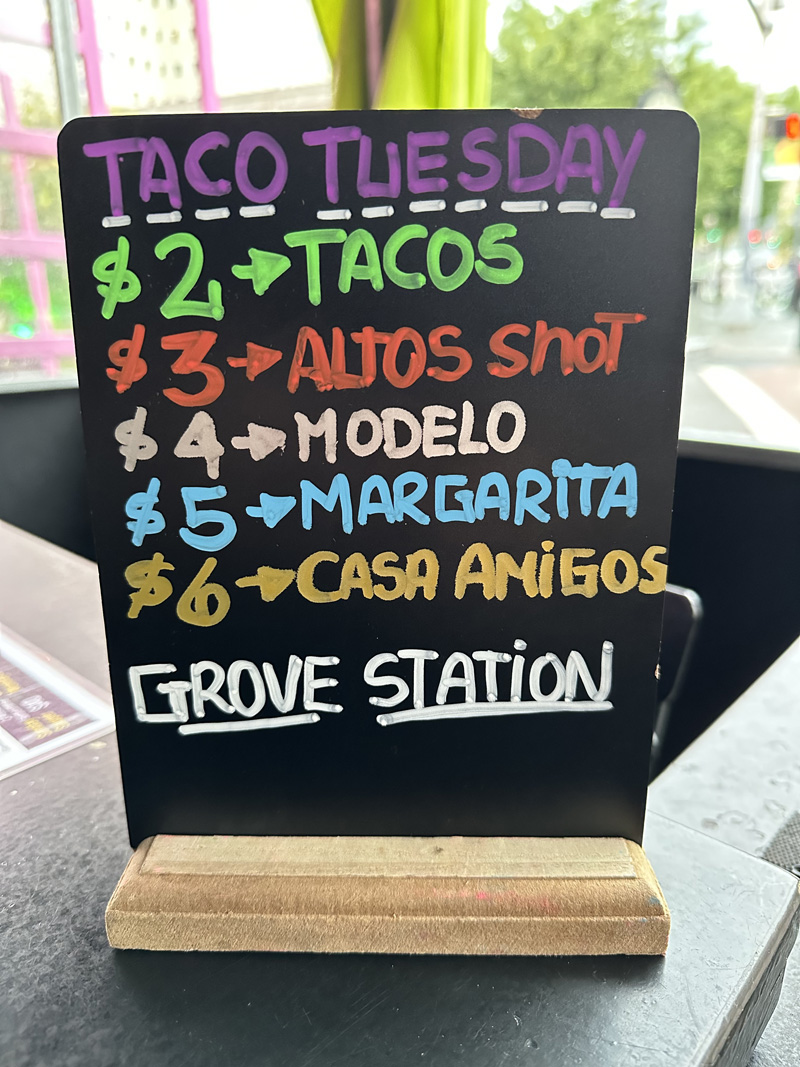 TACO TUESDAY
$2→TACOS
$3→ALTOS SHOT
$4→MODELO
$5→MARGARITA
$6→CASA AMIGOS
GROVE STATION